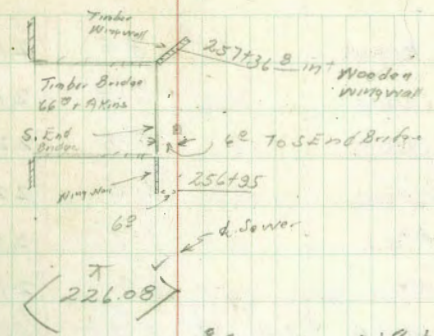 Timber
Wingwall
257+36.8 int
Wooden
Wingwall
Timber Bridge
S. End
Bridge
6.0 To S End Bridge
Wingwall
256+95
6.0
Sewer
226.08